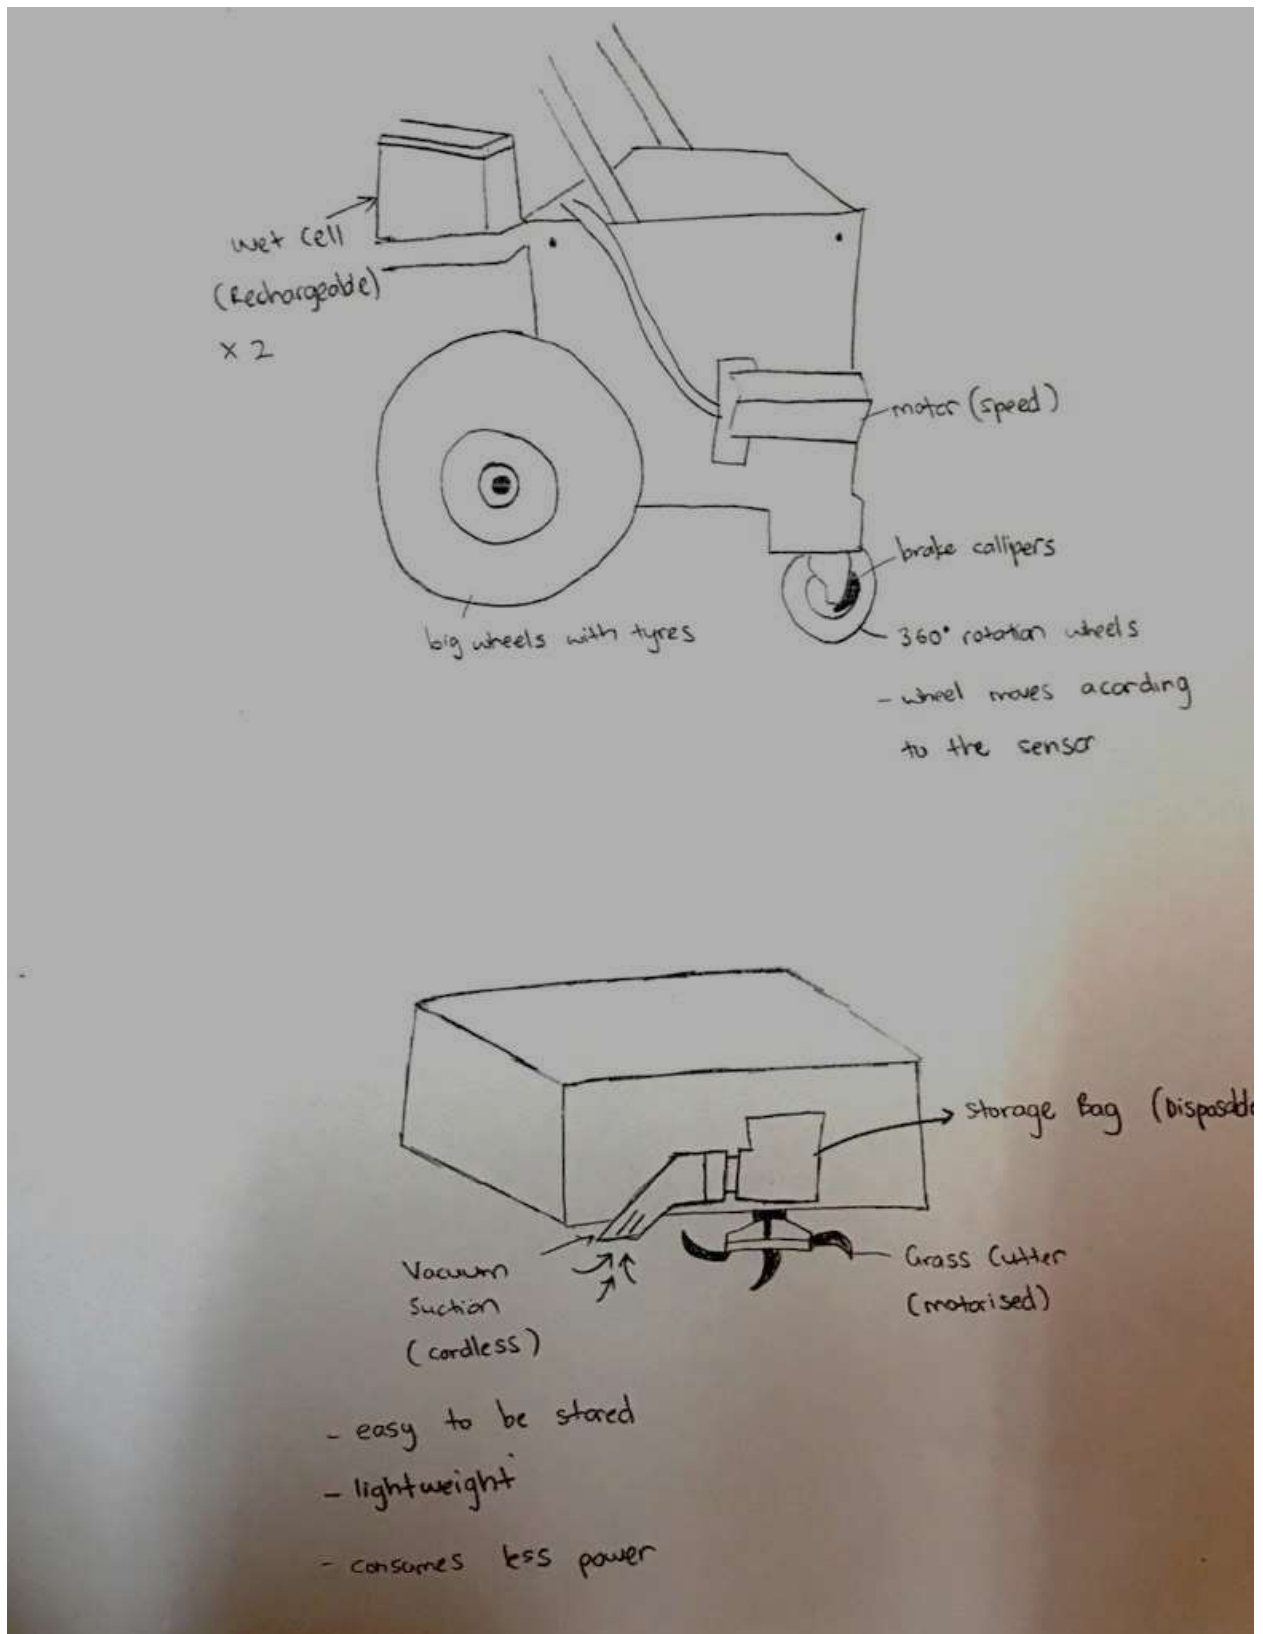 wet cell
(Rechargeable)
x 2
motor (speed)
brake callipers
big wheels with tyres
360° rotation wheels
- wheel moves acording
to the sensor
Storage Bag (Disposable
Vacuum
Suction
(cordless)
Grass Cutter
(motorised)
- easy to be stored
- lightweight
- consumes less power